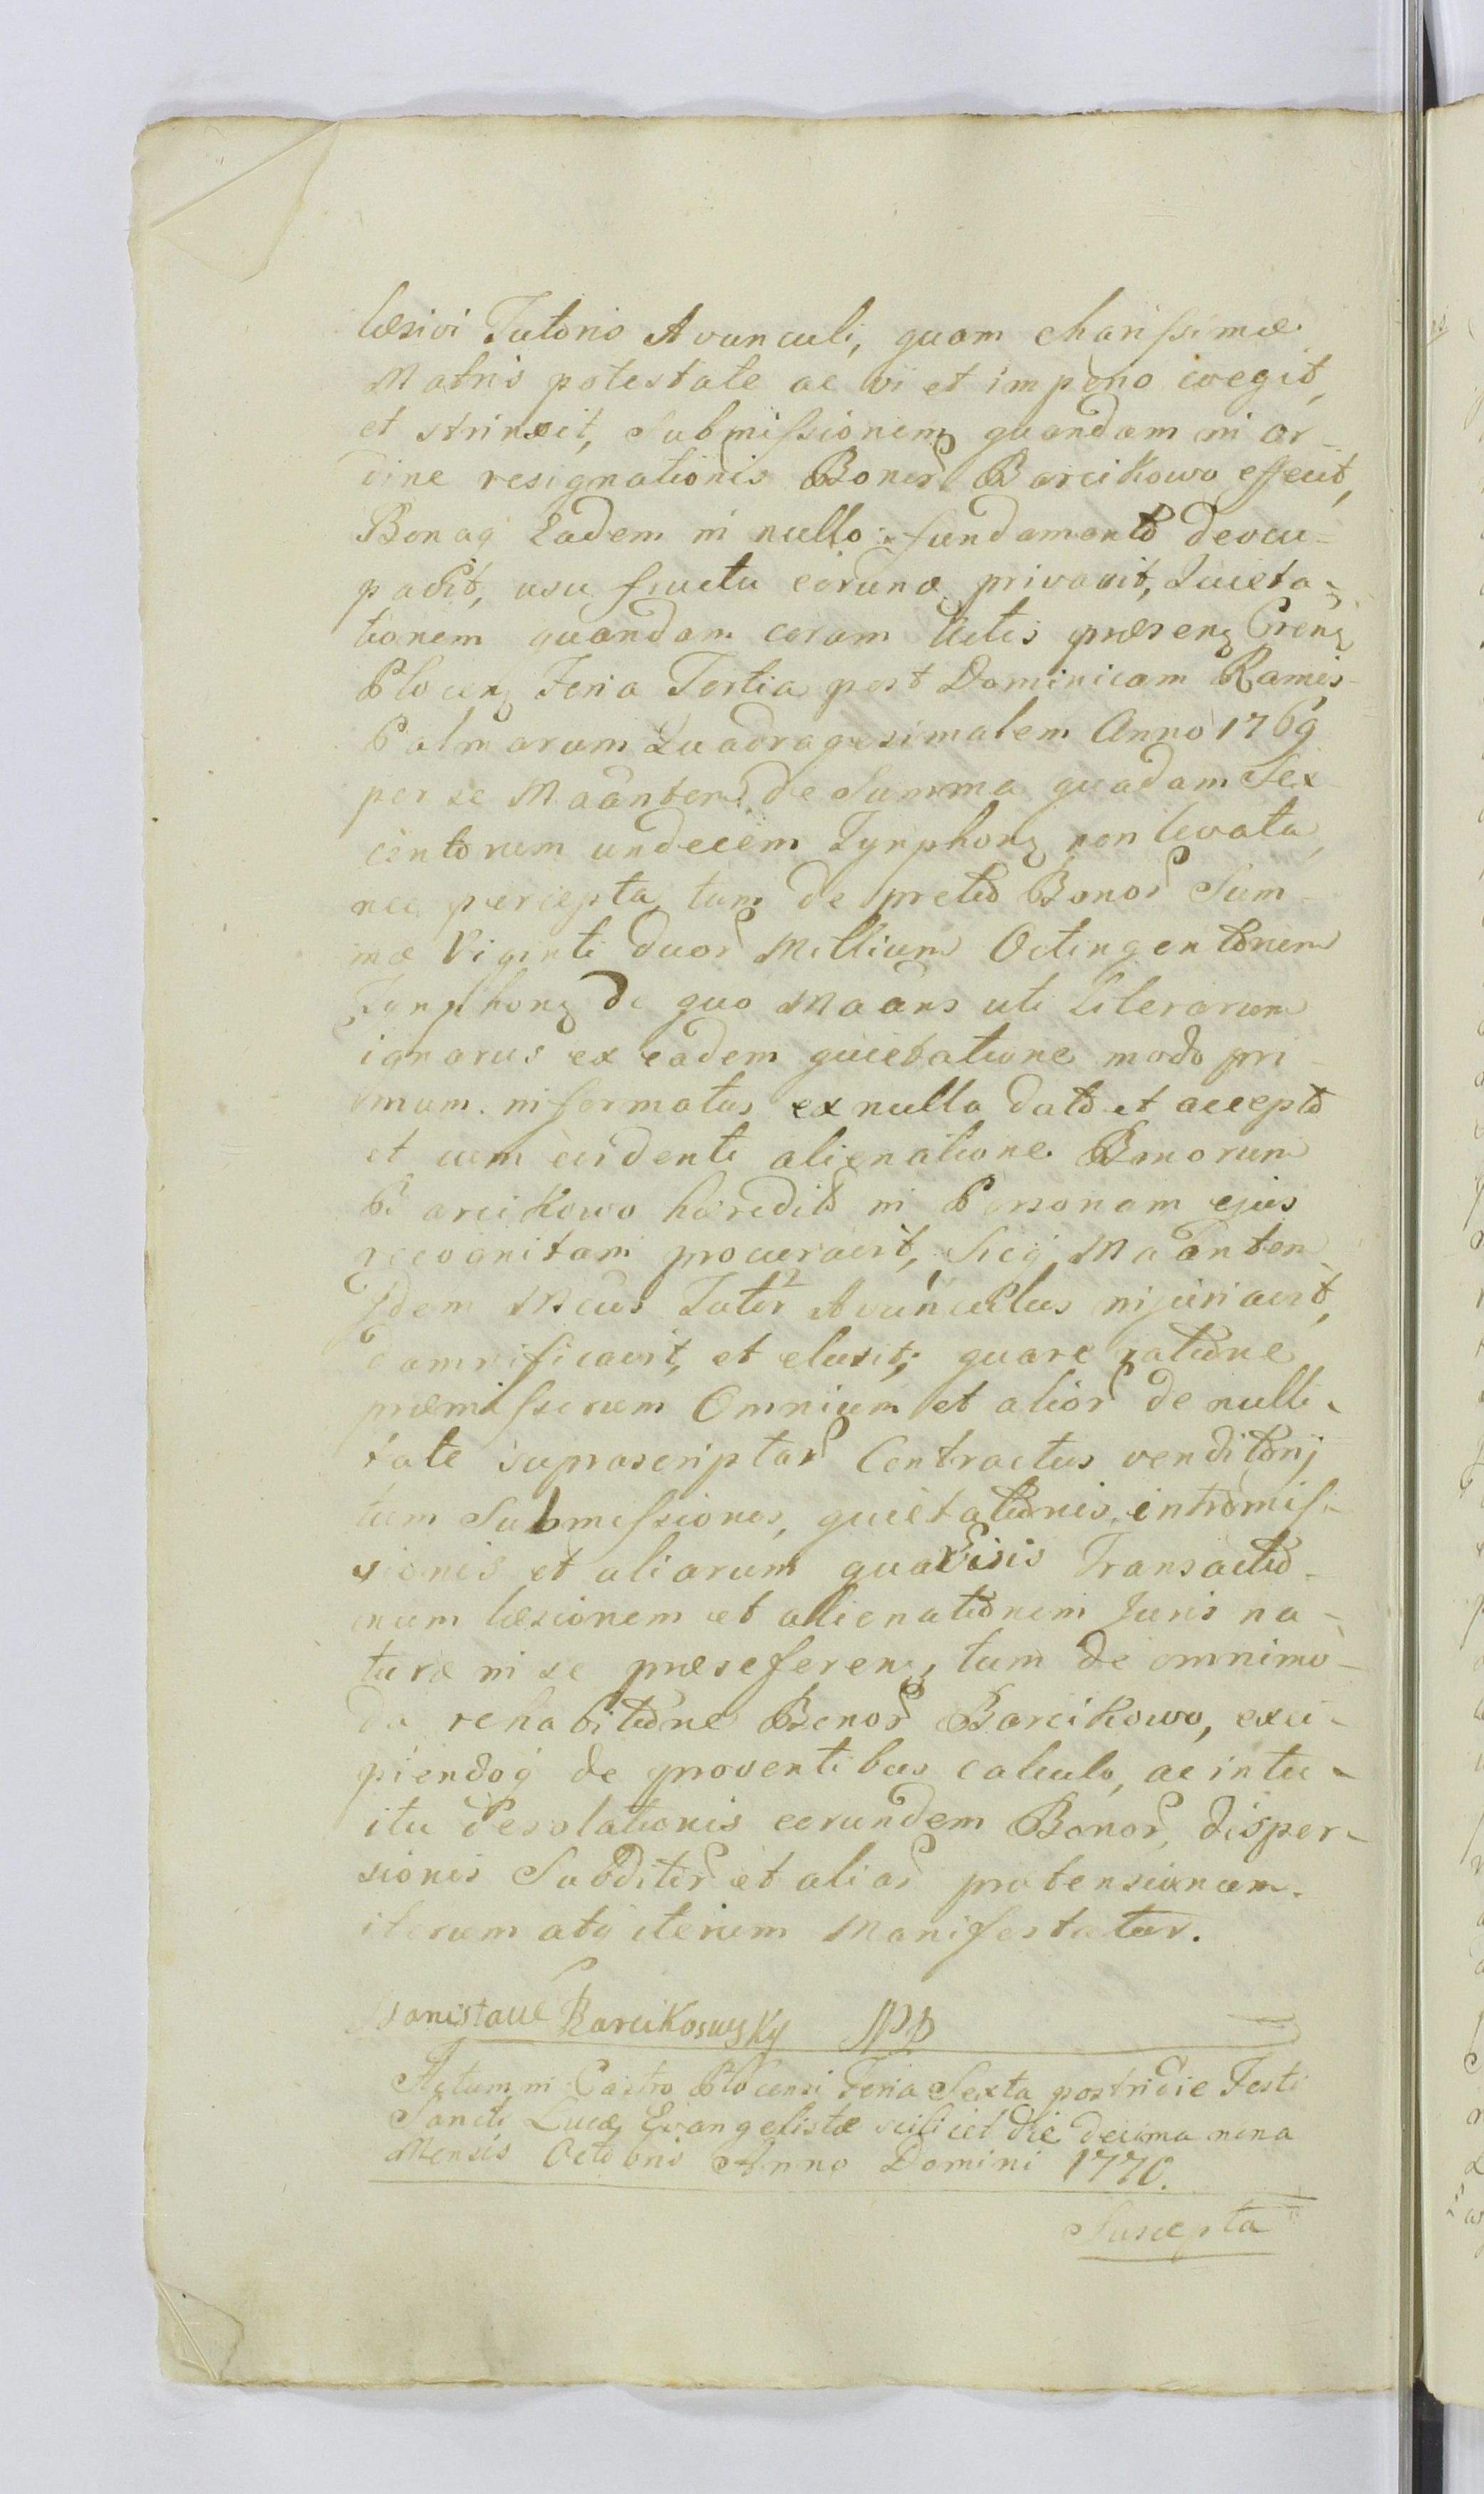 læsivi Tutoris Avunculi, quam charissimæ
Matris potestate ac vi et imperio coegit,
et strinxit, Submissionem quandam in or-
dine resignationis Bonor Barcikowo effecit,
Bonaq Eadem in nullo fundamento deocu-
pavit, usu fructu eorund privavit, Quieta-
tionem quandam coram Actis præsen Cren
Plocen Feria Tertia post Dominicam Ramis
Palmarum Quadragesimalem Anno 1769
per se Maantem de Summa quadam Sex
centorum undecim Tynphon non levata,
nec percepta, tum de pretio Bonor Sum-
mæ Viginti duor Millium Octingentorum
Tynphon de quo Maans uti Literarum
ignarus ex eadem quietatione modo pri-
mum informatus ex nullo dato et accepto
et cum evidenti alienatione Bonorum
Barcikowo hæredito in Personam ejus
recognitam procuravit, Sicq Maantem
Idem Mcus Tutor Avunculus injuriavit,
damnificavit, et elusit; quare ratione
præmissorum Omnium et alior de nulli-
tate suprascriptar Contractus venditorij
tum Submissionis, quietationis, intromis-
sionis et aliarum quarvisis Transactio-
num læsionem et alienationem Juris na-
turæ in se præseferen, tum de omnimo-
da rehabitione Bonor Barcikowo, exci-
piendoq de proventibus calculo, ac intu-
itu desolationis eorundem Bonor, disper-
sionis Subditor et aliar prætensionum.
iterum atq iterum Manifestatur.
Stanisław Barcikowsky MPP
Actum in Castro Plocensi Feria Sexta postridie Festi
Sancti Lucæ Evangelistæ scilicet die decima nona
Mensis Octobris Anno Domini 1770.
Suscepta